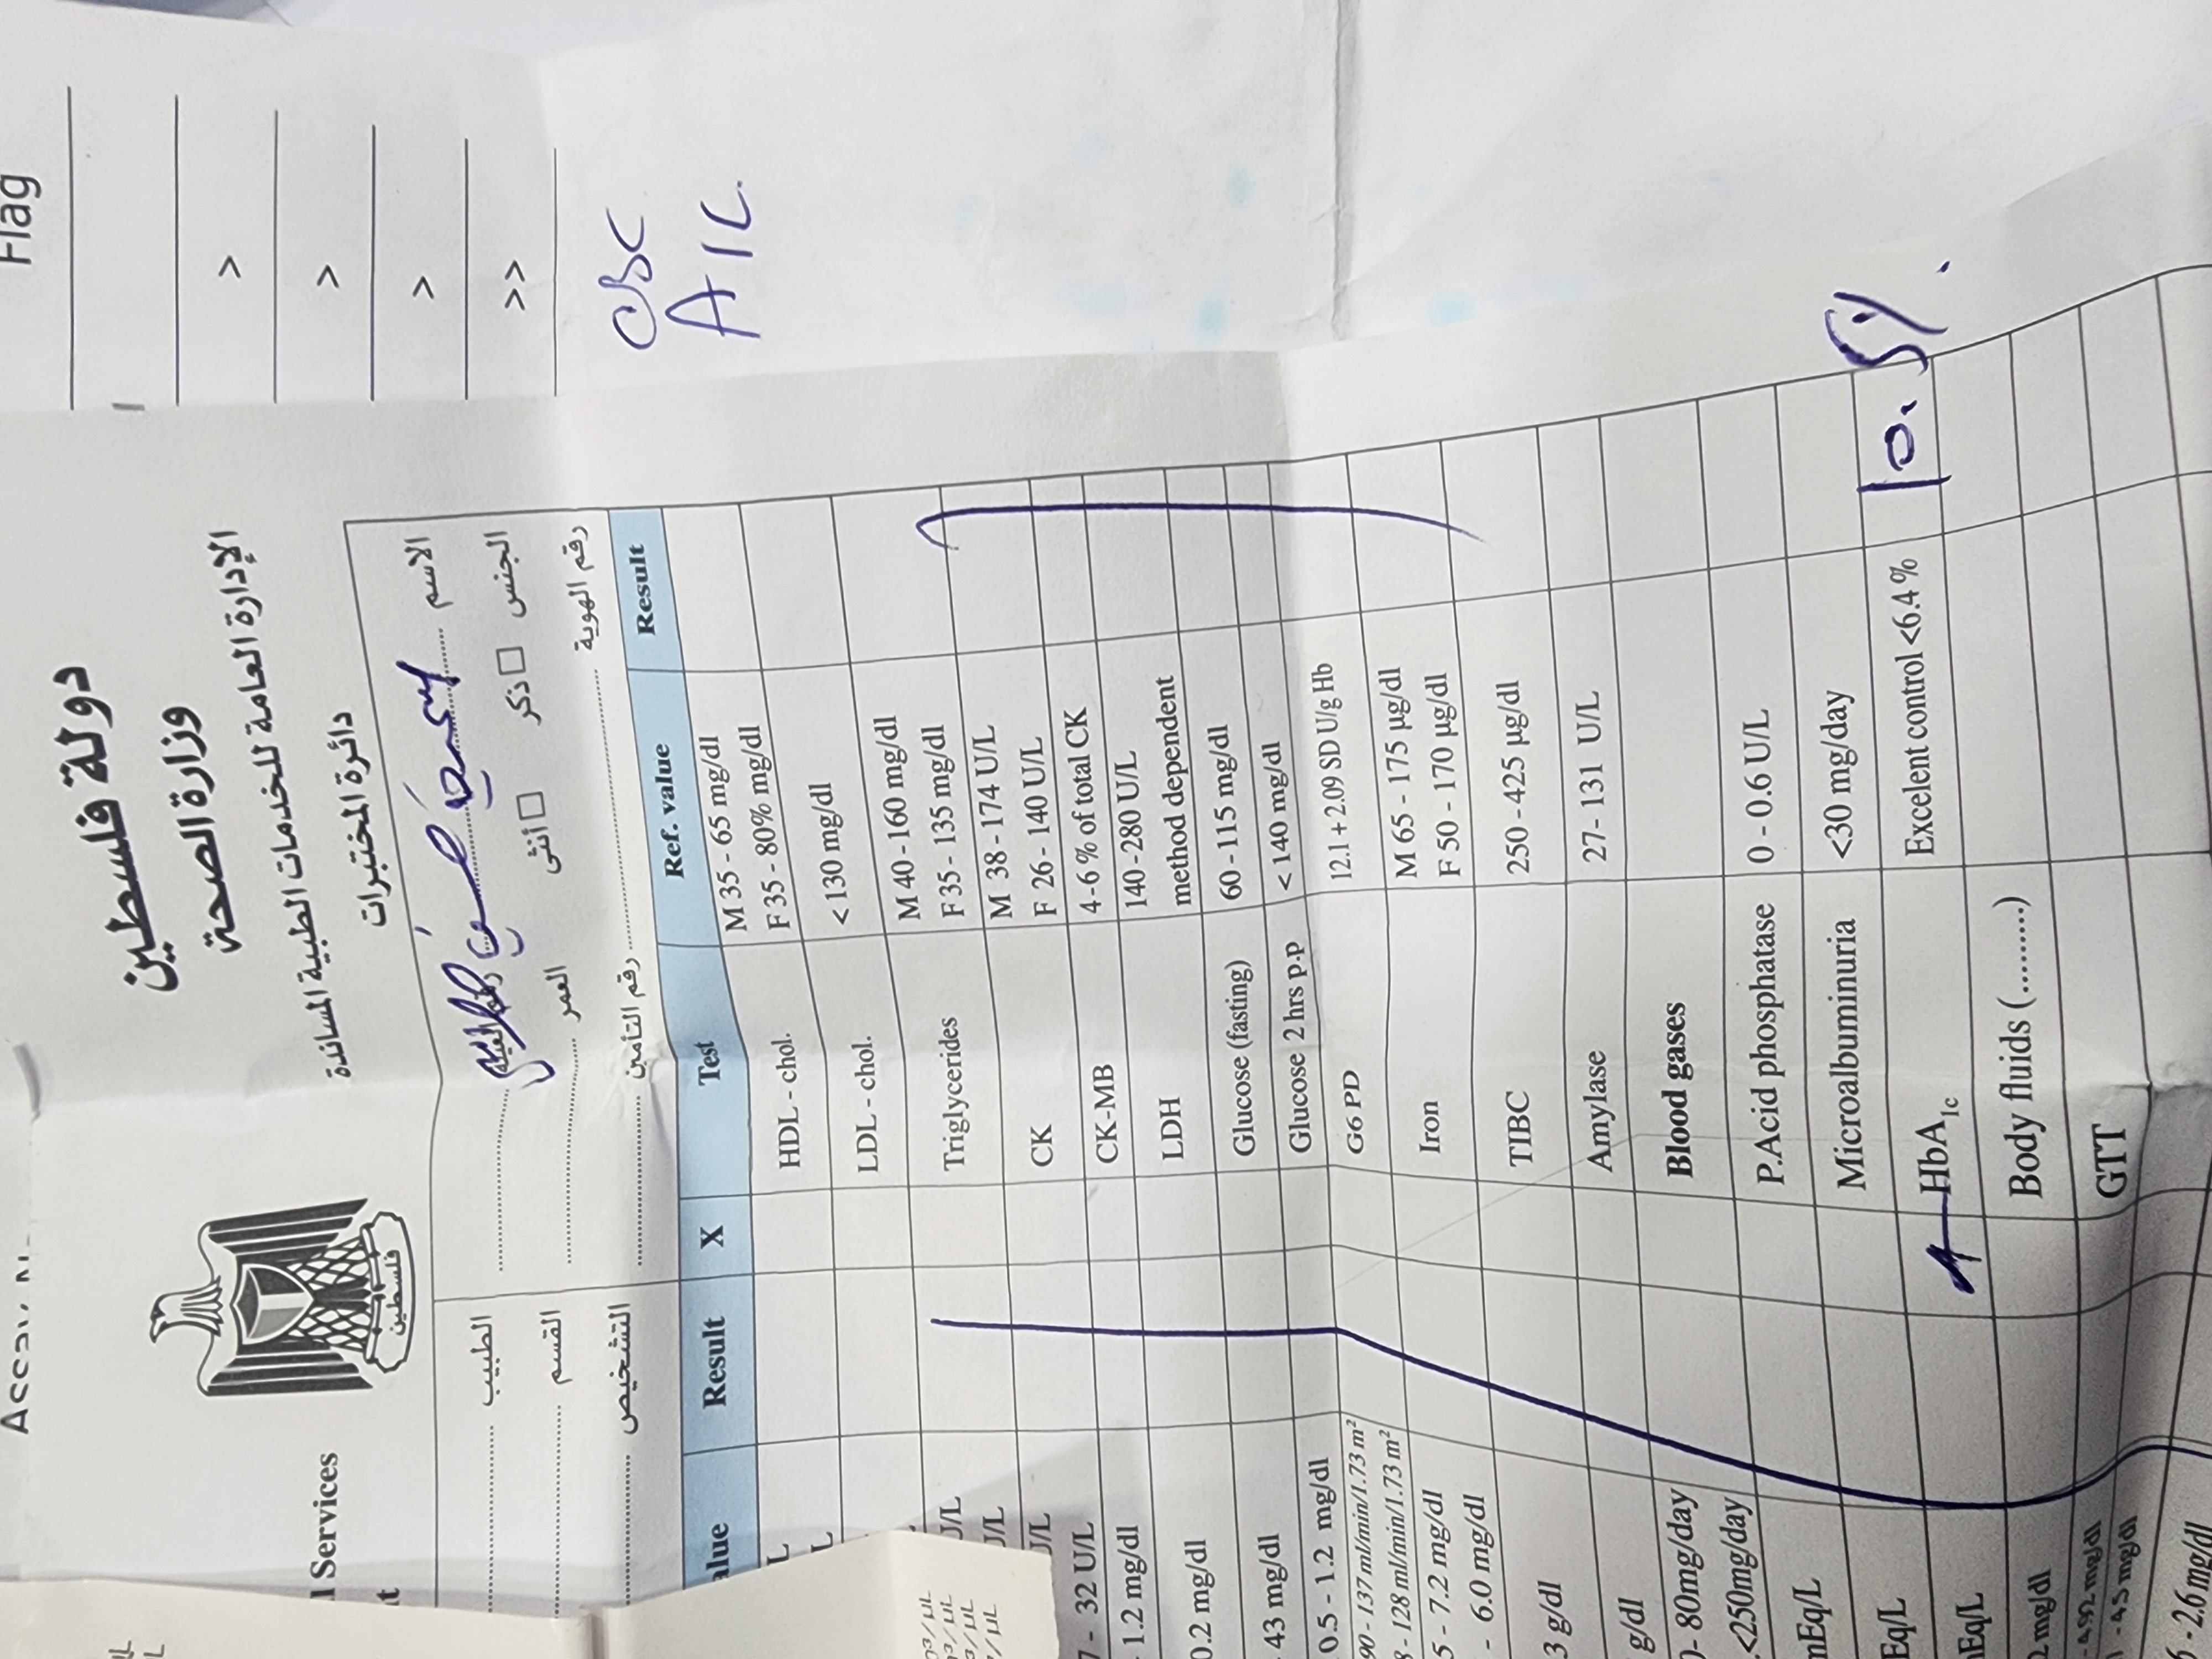 Flag
>
>
>
>>
CBC
A1C
دولة فلسطين
وزارة الصحة
الإدارة العامة للخدمات الطبية المساندة
دائرة المختبرات
فلسطين
l Services
t
الاسم
الطبيب
الجنس □ ذكر □ أنثى العمر
القسم
رقم الهوية رقم التأمين
التشخيص
alue Result X Test Ref. value Result
HDL - chol. M 35 - 65 mg/dl
F 35 - 80% mg/dl
LDL - chol. < 130 mg/dl
Triglycerides M 40 - 160 mg/dl
F 35 - 135 mg/dl
CK M 38 - 174 U/L
F 26 - 140 U/L
7 - 32 U/L CK-MB 4 - 6 % of total CK
1.2 mg/dl LDH 140 -280 U/L
method dependent
0.2 mg/dl Glucose (fasting) 60 -115 mg/dl
43 mg/dl Glucose 2 hrs p.p < 140 mg/dl
0.5 - 1.2 mg/dl G6 PD 12.1 + 2.09 SD U/g Hb
90 - 137 ml/min/1.73 m²
8 - 128 ml/min/1.73 m²
Iron M 65 - 175 µg/dl
F 50 - 170 µg/dl
5 - 7.2 mg/dl
- 6.0 mg/dl TIBC 250 - 425 µg/dl
3 g/dl Amylase 27- 131 U/L
g/dl Blood gases
)- 80mg/day
<250mg/day P.Acid phosphatase 0 - 0.6 U/L
mEq/L Microalbuminuria <30 mg/day
Eq/L HbA1c Excelent control <6.4 % 10.5%
nEq/L Body fluids (.........)
2 mg/dl GTT
- 2.6 mg/dl